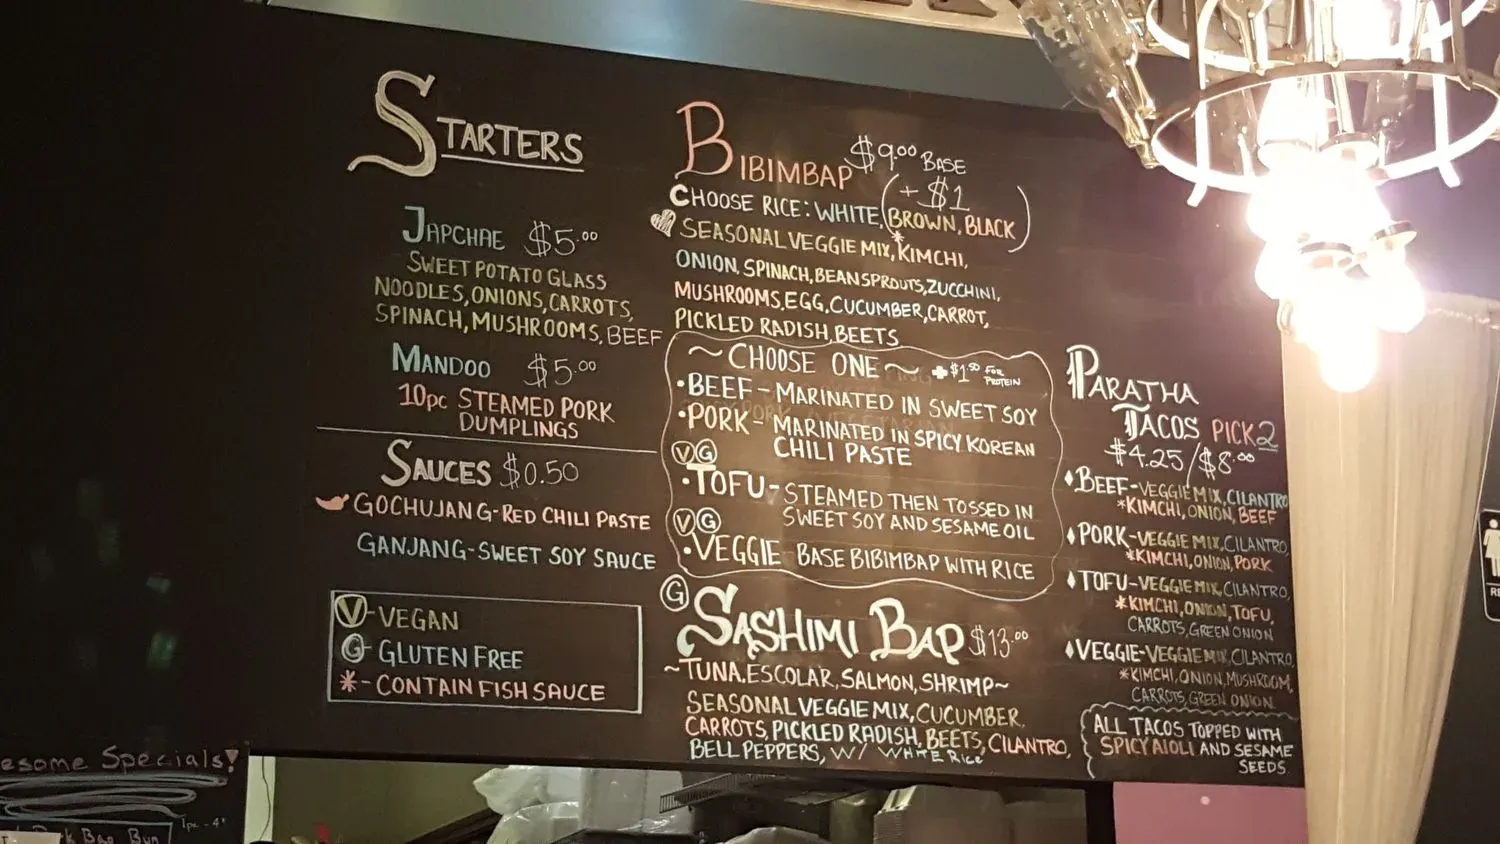 STARTERS
JAPCHAE $5.00
SWEET POTATO GLASS
NOODLES, ONIONS, CARROTS,
SPINACH, MUSHROOMS, BEEF
MANDOO $5.00
10pc STEAMED PORK
DUMPLINGS
SAUCES $0.50
GOCHUJANG-RED CHILI PASTE
GANJANG-SWEET SOY SAUCE
V-VEGAN
G-GLUTEN FREE
*-CONTAIN FISH SAUCE
BIBIMBAP $9.00 BASE
(+$1
CHOOSE RICE: WHITE, BROWN, BLACK)
SEASONAL VEGGIE MIX, *KIMCHI,
ONION, SPINACH, BEAN SPROUTS, ZUCCHINI,
MUSHROOMS, EGG, CUCUMBER, CARROT,
PICKLED RADISH, BEETS
~CHOOSE ONE~ +$1.50 FOR PROTEIN
•BEEF-MARINATED IN SWEET SOY
•PORK-MARINATED IN SPICY KOREAN
CHILI PASTE
V G
•TOFU-STEAMED THEN TOSSED IN
SWEET SOY AND SESAME OIL
V G
•VEGGIE BASE BIBIMBAP WITH RICE
G SASHIMI BAP $13.00
~TUNA, ESCOLAR, SALMON, SHRIMP~
SEASONAL VEGGIE MIX, CUCUMBER,
CARROTS, PICKLED RADISH, BEETS, CILANTRO,
BELL PEPPERS, W/ WHITE RICE
PARATHA
TACOS PICK 2
$4.25/$8.00
♦BEEF-VEGGIE MIX, CILANTRO
*KIMCHI, ONION, BEEF
♦PORK-VEGGIE MIX, CILANTRO,
*KIMCHI, ONION, PORK
♦TOFU-VEGGIE MIX, CILANTRO,
*KIMCHI, ONION, TOFU,
CARROTS, GREEN ONION
♦VEGGIE-VEGGIE MIX, CILANTRO,
*KIMCHI, ONION, MUSHROOM,
CARROTS, GREEN ONION
ALL TACOS TOPPED WITH
SPICY AIOLI AND SESAME
SEEDS.
esome Specials!
Bao Bun
1pc - 4
RE